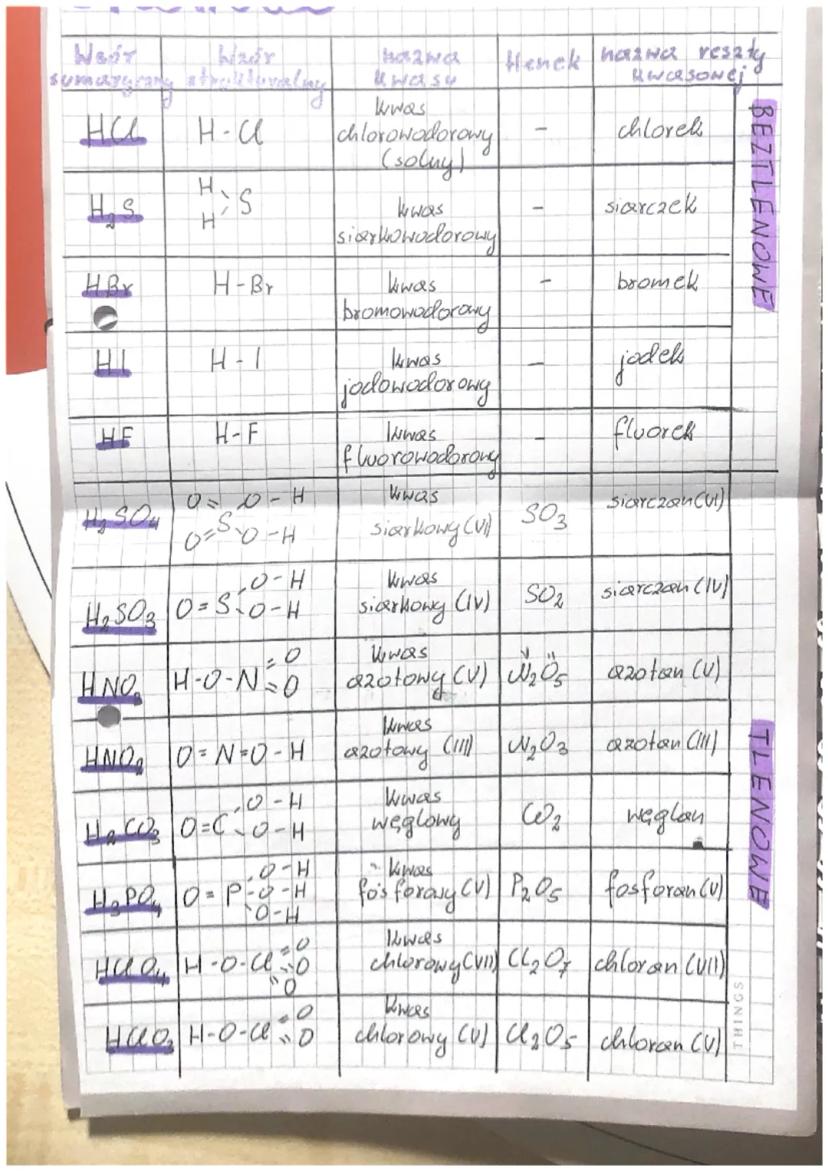 Wzór sumaryczny Wzór strukturalny nazwa kwasu tlenek nazwa reszty kwasowej
HCl H-Cl kwas chlorowodorowy (solny) - chlorek
H₂S H H S kwas siarkowodorowy - siarczek
HBr H-Br kwas bromowodorowy - bromek
HI H-I kwas jodowodorowy - jodek
HF H-F kwas fluorowodorowy - fluorek
BEZTLENOWE
H₂SO₄ O= O-H S O= O-H kwas siarkowy (VI) SO₃ siarczan (VI)
H₂SO₃ O=S O-H O-H kwas siarkowy (IV) SO₂ siarczan (IV)
HNO₃ H-O-N =O =O kwas azotowy (V) N₂O₅ azotan (V)
HNO₂ O=N=O-H kwas azotowy (III) N₂O₃ azotan (III)
H₂CO₃ O=C O-H O-H kwas węglowy CO₂ węglan
H₃PO₄ O=P O-H -O-H O-H kwas fosforowy (V) P₂O₅ fosforan (V)
HClO₄ H-O-Cl =O =O =O kwas chlorowy (VII) Cl₂O₇ chloran (VII)
HClO₃ H-O-Cl =O =O kwas chlorowy (V) Cl₂O₅ chloran (V)
TLENOWE
THINGS